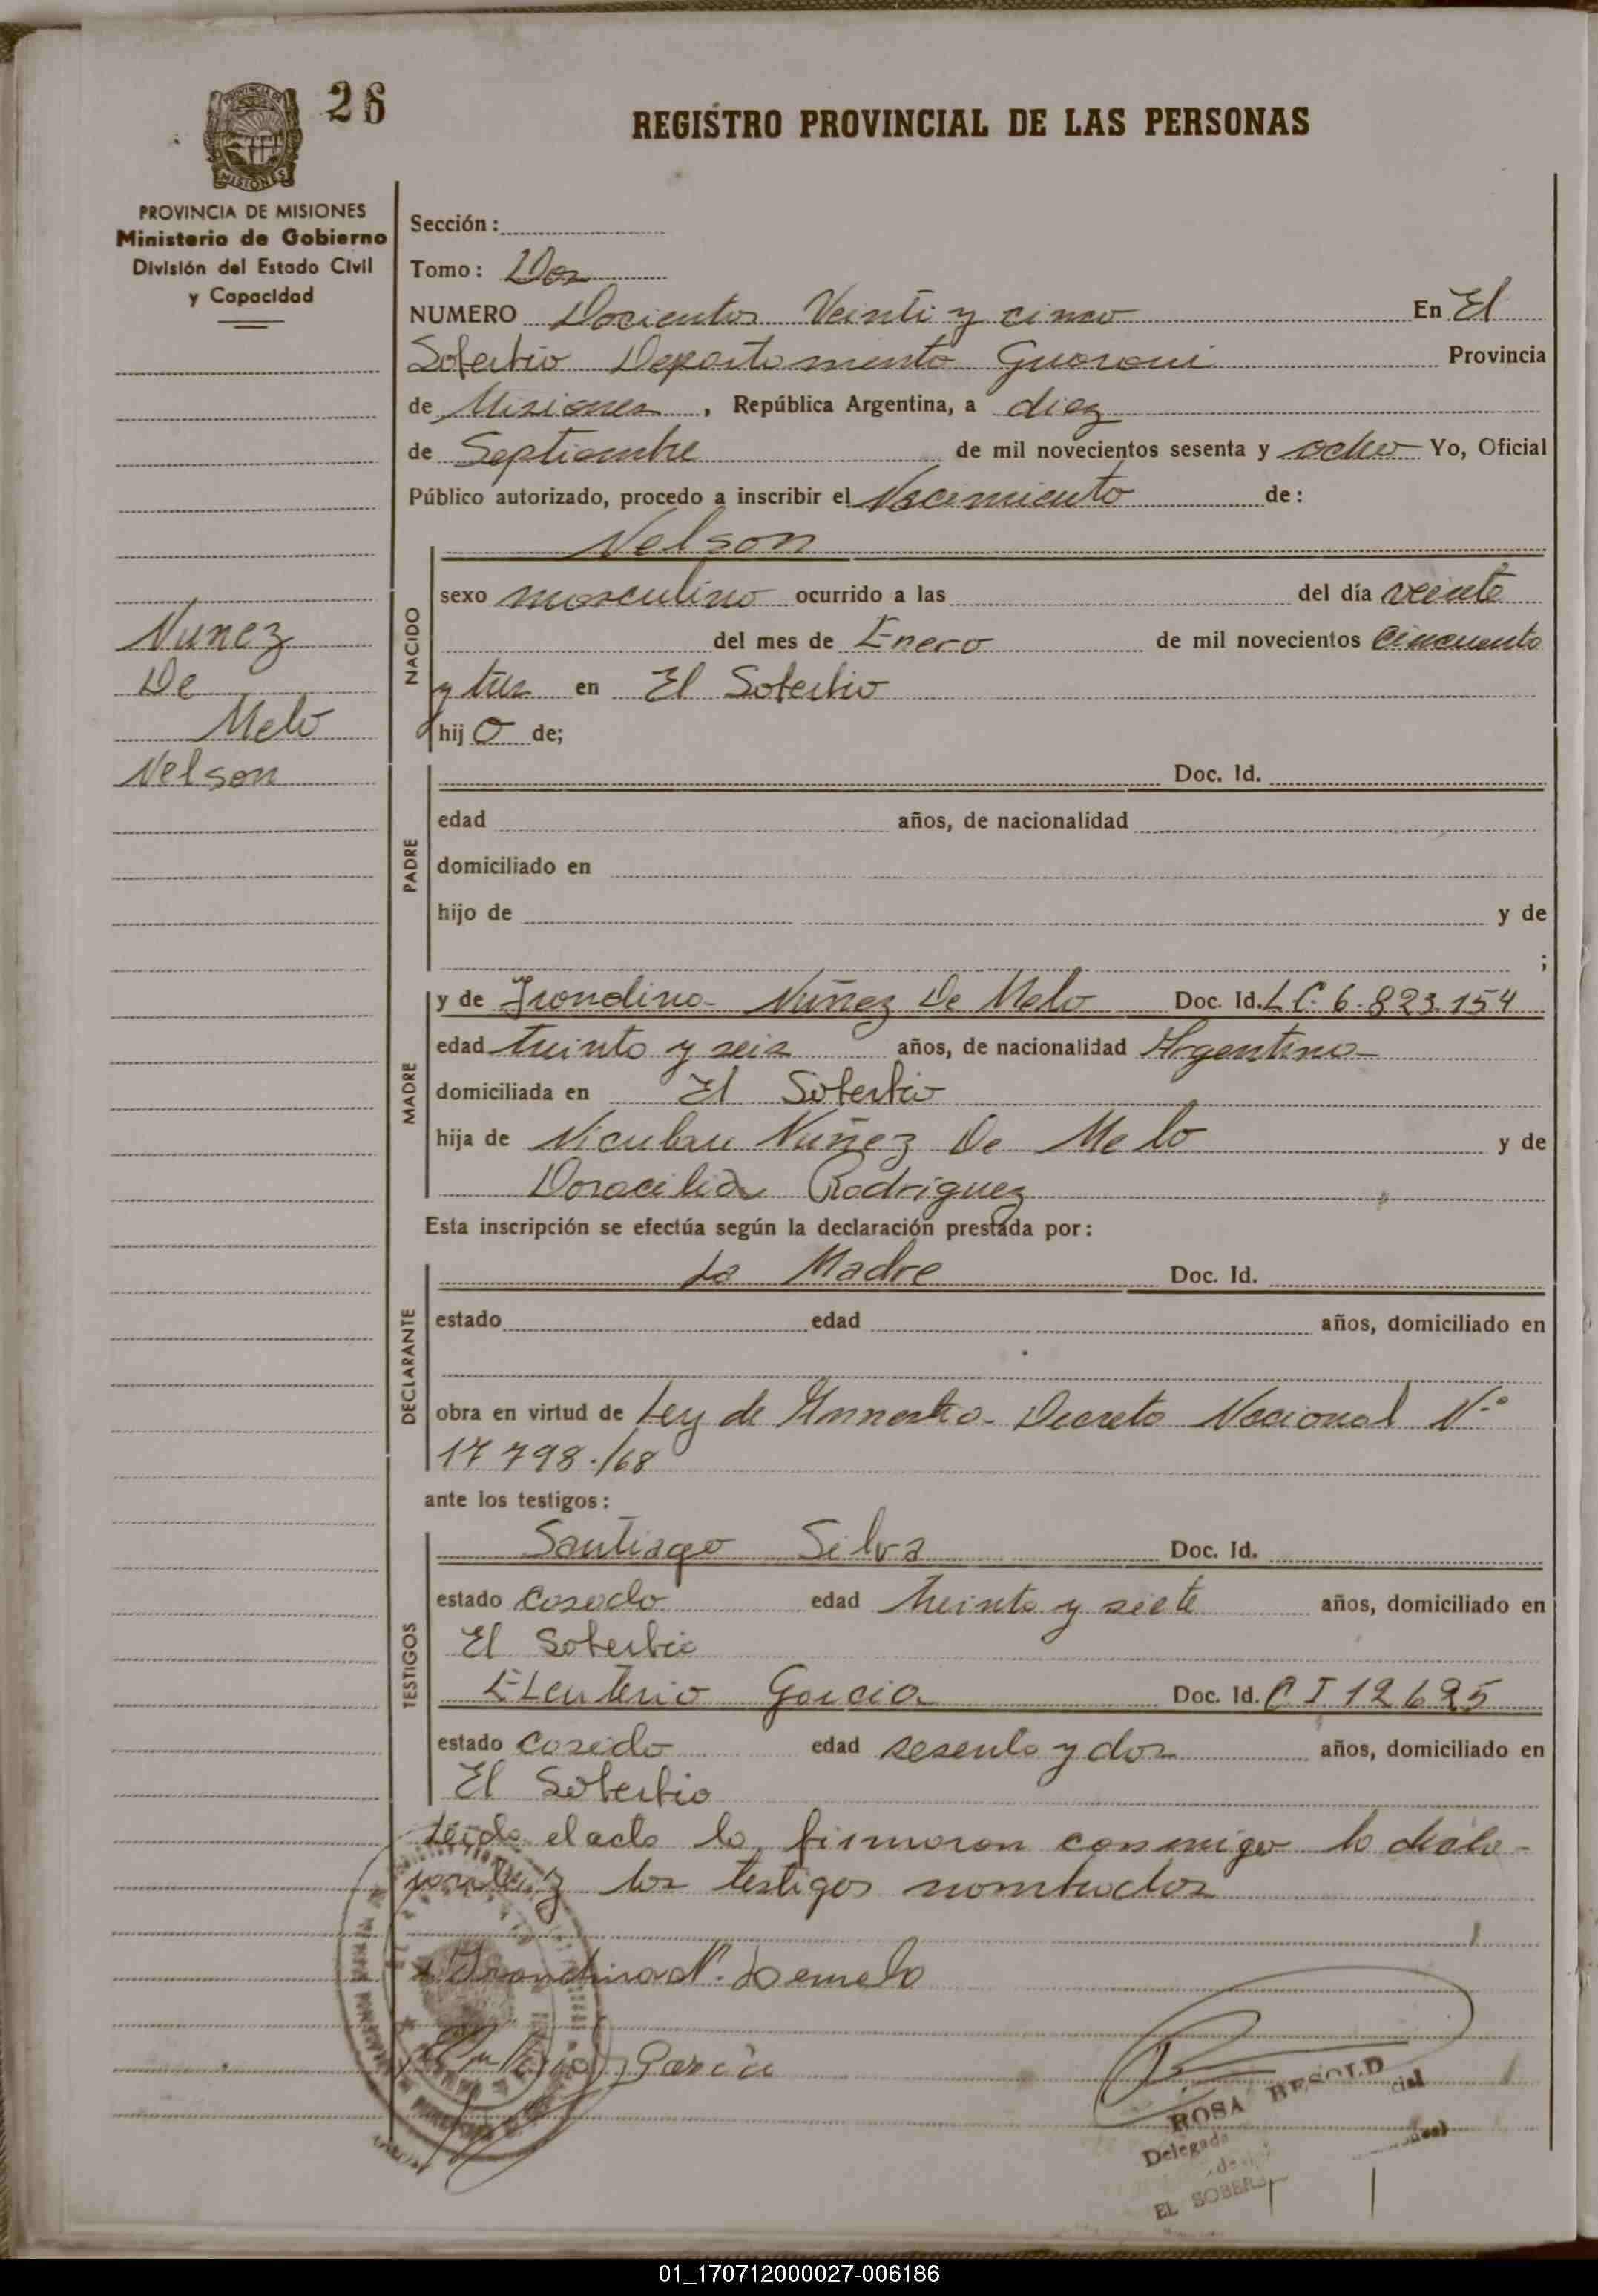 26
REGISTRO PROVINCIAL DE LAS PERSONAS
PROVINCIA DE MISIONES
Ministerio de Gobierno
División del Estado Civil
y Capacidad
Sección:
Tomo: Dos
NUMERO Docientos Veinti y cinco En El
Soberbio Departamento Guarani Provincia
de Misiones, República Argentina, a diez
de Septiembre de mil novecientos sesenta y ocho Yo, Oficial
Público autorizado, procedo a inscribir el Nacimiento de:
Nelson
NACIDO
sexo masculino ocurrido a las del día veinte
del mes de Enero de mil novecientos Cincuenta
y tres en El Soberbio
hijo de;
Nunez
De
Melo
Nelson
PADRE
Doc. Id.
edad años, de nacionalidad
domiciliado en
hijo de y de
;
MADRE
y de Núñez De Melo Doc. Id. LC. 6.823.154
edad treinta y seis años, de nacionalidad Argentina
domiciliada en El Soberbio
hija de Núñez De Melo y de
Rodriguez
Esta inscripción se efectúa según la declaración prestada por:
DECLARANTE
La Madre Doc. Id.
estado edad años, domiciliado en
obra en virtud de Ley de Decreto Nacional Nº
17798./68
ante los testigos:
TESTIGOS
Santiago Silva Doc. Id.
estado Casado edad treinta y siete años, domiciliado en
El Soberbio
Eleuterio Garcia Doc. Id. C I 12625
estado casado edad sesenta y dos años, domiciliado en
El Soberbio
leida el acta la firmaron conmigo la decla-
rante y los testigos nombrados
N. Demelo
Garcia
ROSA BESOLD
Delegada
EL SOBER
01_170712000027-006186